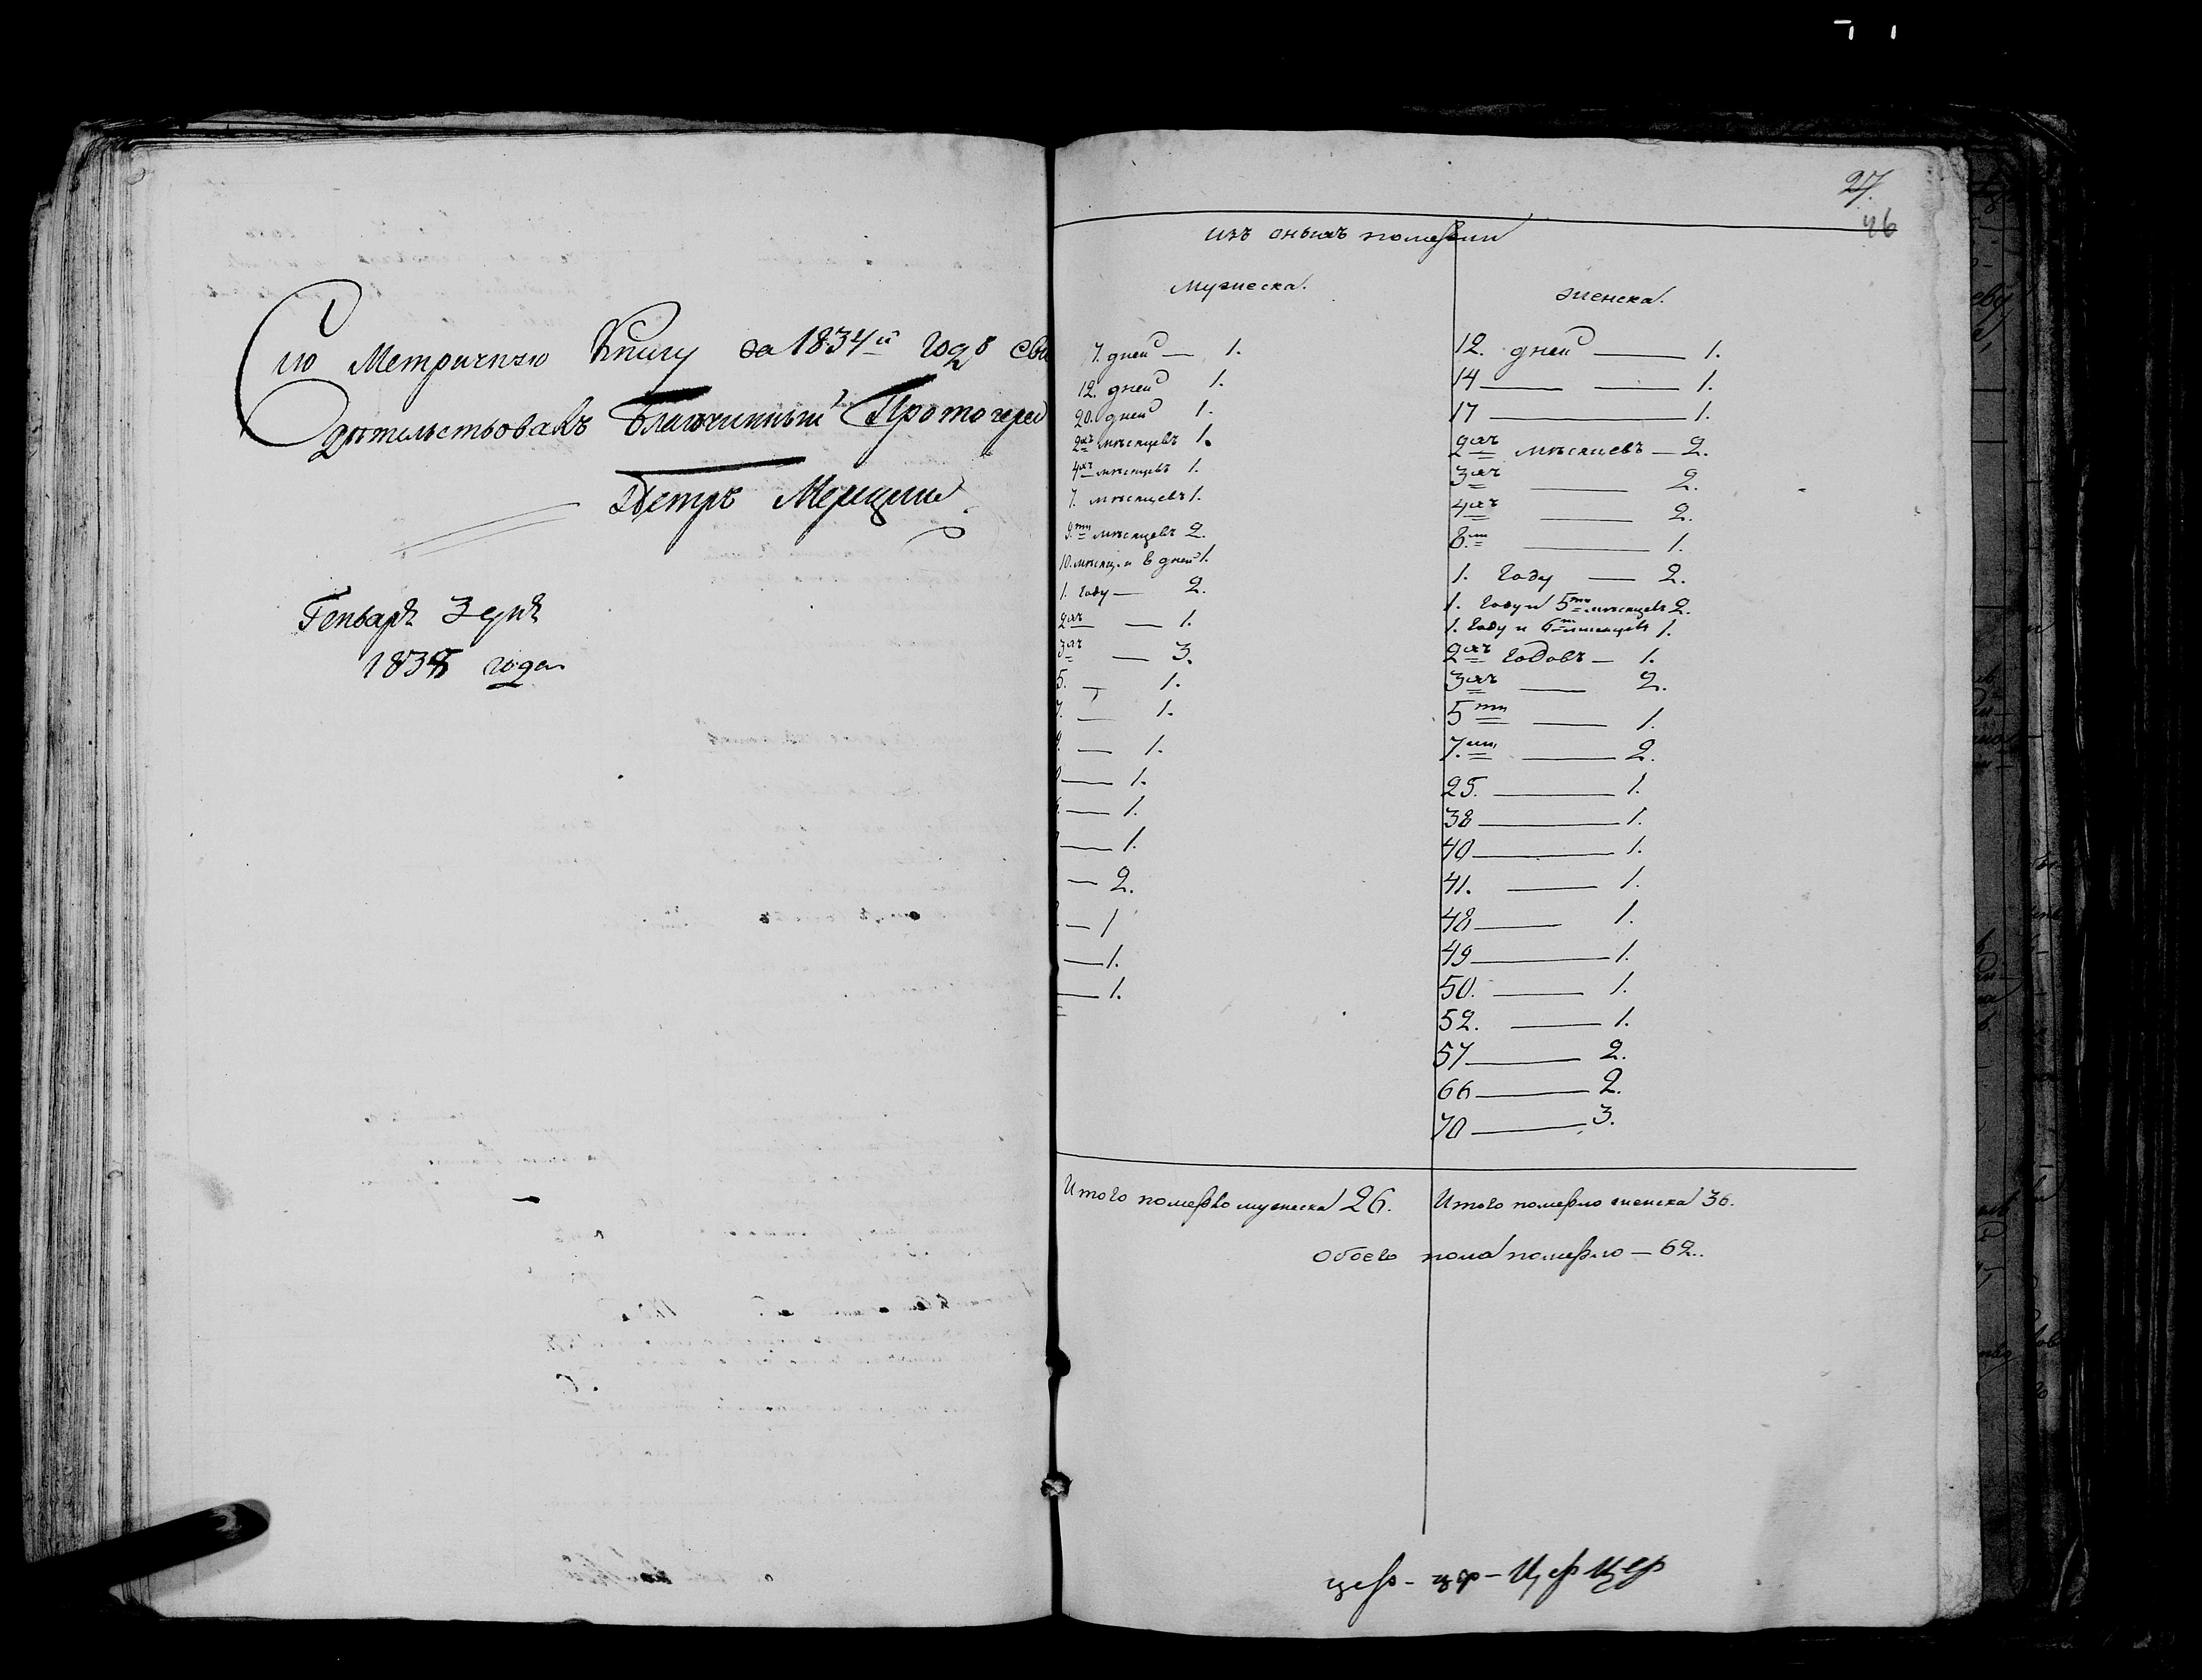 Сию Метричную Книгу за 1834й годъ сви
дѣтельствовалъ Благочинный Протоіерей
Петръ
Генваря 3 дня
1835 года
27.
46
изъ оныхъ померли
Мужеска.
женска.
7. дней — 1.
12. дней 1.
20. дней 1.
2хъ мѣсяцевъ 1.
4хъ мѣсяцевъ 1.
7. мѣсяцевъ 1.
9.ти мѣсяцевъ 2.
10. мѣсяц. и 6 дней 1.
1. году — 2.
2хъ — 1.
3хъ — 3.
5. — 1.
7. — 1.
— 1.
— 1.
— 1.
— 1.
— 2.
— 1
— 1.
— 1.
12. дней — 1.
14 — — 1.
17 — 1.
2хъ мѣсяцевъ — 2.
3хъ — 2.
4хъ — 2.
8.ми — 1.
1. году — 2.
1. году и 5ти мѣсяцевъ 2.
1. году и 6ти мѣсяцевъ 1.
2хъ годовъ — 1.
3хъ — 2.
5ти — 1.
7.ми — 2.
25. — 1.
38 — 1.
40 — 1.
41. — 1.
48 — 1.
49 — 1.
50. — 1.
52. — 1.
57 — 2.
66 — 2.
70 — 3.
Итого померло мужеска 26.
Итого померло женска 36.
Обоего пола померло — 62.